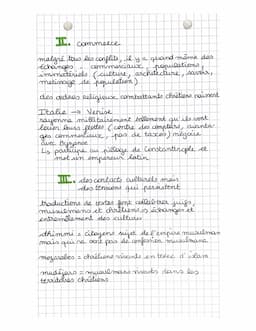 II. commerce
malgré tous les conflits, il y a quand même des
échanges : commerciaux, populations,
immatériels (culture, architecture, savoir,
métissage de population)
des ordres religieux combattants chrétiens naissent
Italie → Venise
rayonne militairement tellement qu'ils vont
louer leurs flottes (contre des comptoirs, avanta-
ges commerciaux, pas de taxes) négocie
avec Byzance
Ils participe au pillage de Constantinople et
met un empereur latin
III. des contacts culturels mais
des tensions qui persistent
traductions de textes font collaborer juifs,
musulmans et chrétiens → échanges et
entremêlement des cultures
dhimmi = citoyens sujet de l'empire musulman
mais qui ne sont pas de confession musulmane
mozarabes = chrétiens vivants en terre d'islam
mudéjars = musulmans vivants dans les
territoires chrétiens